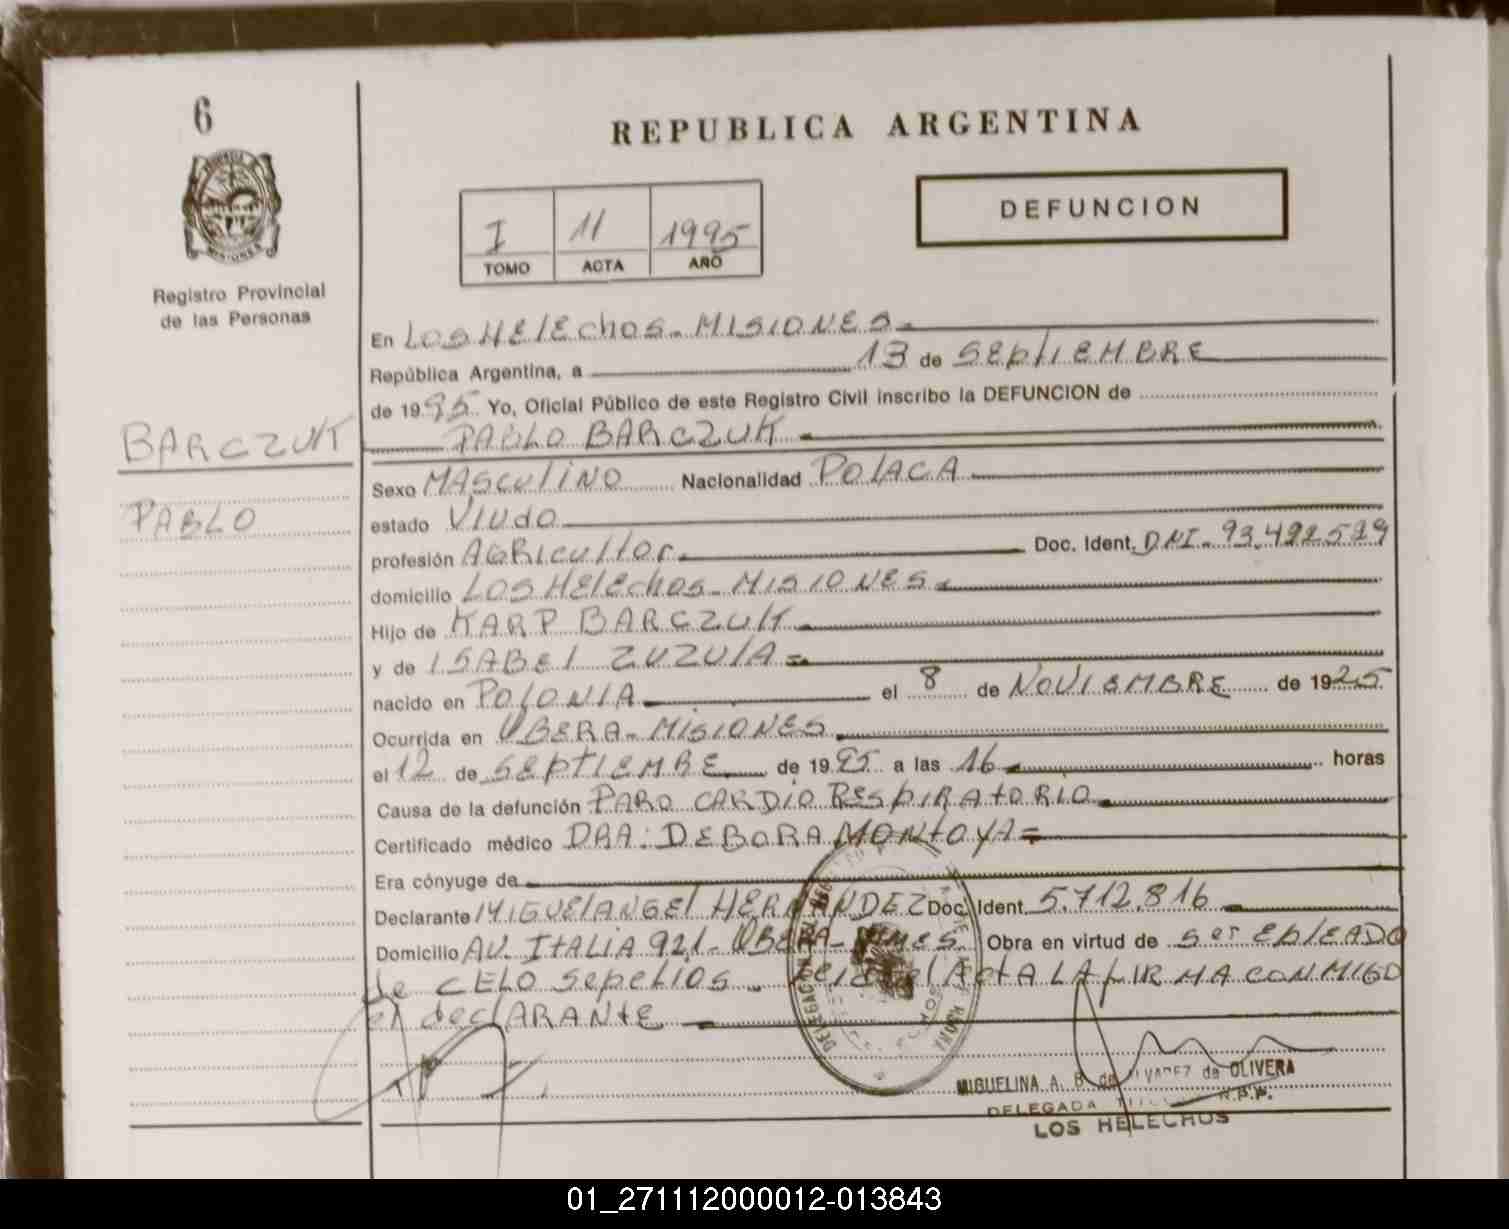 6
REPUBLICA ARGENTINA
DEFUNCION
I 11 1995
TOMO ACTA AÑO
MISIONES
Registro Provincial
de las Personas
BARCZUK
PABLO
En LOS HELEchos - MISIONES
República Argentina, a 13 de SEptIEMBRE
de 1995 Yo, Oficial Público de este Registro Civil inscribo la DEFUNCION de
PABLO BARCZUK
Sexo MASculiNO Nacionalidad POLACA
estado Viudo
profesión AGRicultor Doc. Ident. DNI - 93.492.599
domicilio LOS HELEchos - MISIONES
Hijo de KARP BARCZUK
y de ISABEl ZUZULA
nacido en POLONIA el 8 de NOVIEMBRE de 1925
Ocurrida en OBERA - MISIONES
el 12 de SEPTIEMBRE de 1995 a las 16 horas
Causa de la defunción PARO CARDIO RESPIRATORIO
Certificado médico DRA: DEBORA MONtOYA
Era cónyuge de
Declarante MIGUEl ANGEl HERNANDEZ Doc. Ident. 5.712.816
Domicilio AV. ITALIA 921 - OBERA - Mnes. Obra en virtud de ser EplEADO
de CELO sepelios - leida el ActA LA fIRMA conMIGO
el declARANtE
MIGUELINA A. B. de ALVAREZ de OLIVERA
DELEGADA R.P.P.
LOS HELECHOS
01_271112000012-013843